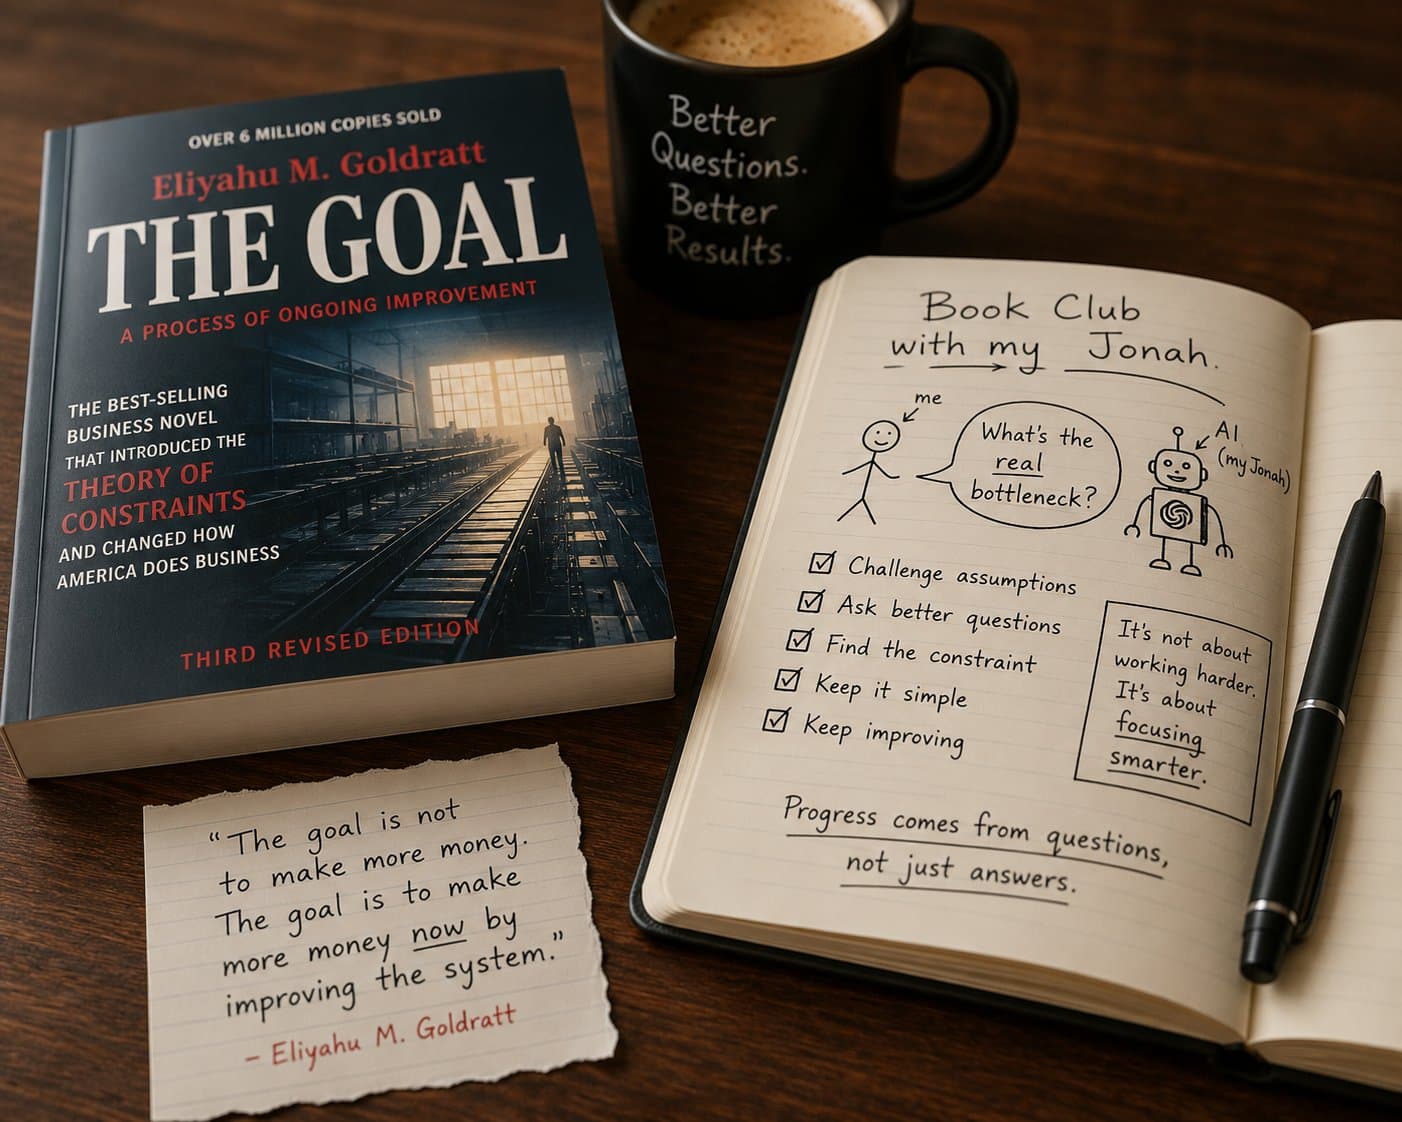 OVER 6 MILLION COPIES SOLD
Eliyahu M. Goldratt
THE GOAL
A PROCESS OF ONGOING IMPROVEMENT
THE BEST-SELLING
BUSINESS NOVEL
THAT INTRODUCED THE
THEORY OF
CONSTRAINTS
AND CHANGED HOW
AMERICA DOES BUSINESS
THIRD REVISED EDITION
Better
Questions.
Better
Results.
Book Club
with my Jonah.
me
What's the
real
bottleneck?
AI
(my Jonah)
Challenge assumptions
Ask better questions
Find the constraint
Keep it simple
Keep improving
It's not about
working harder.
It's about
focusing
smarter.
Progress comes from questions,
not just answers.
"The goal is not
to make more money.
The goal is to make
more money now by
improving the system."
– Eliyahu M. Goldratt